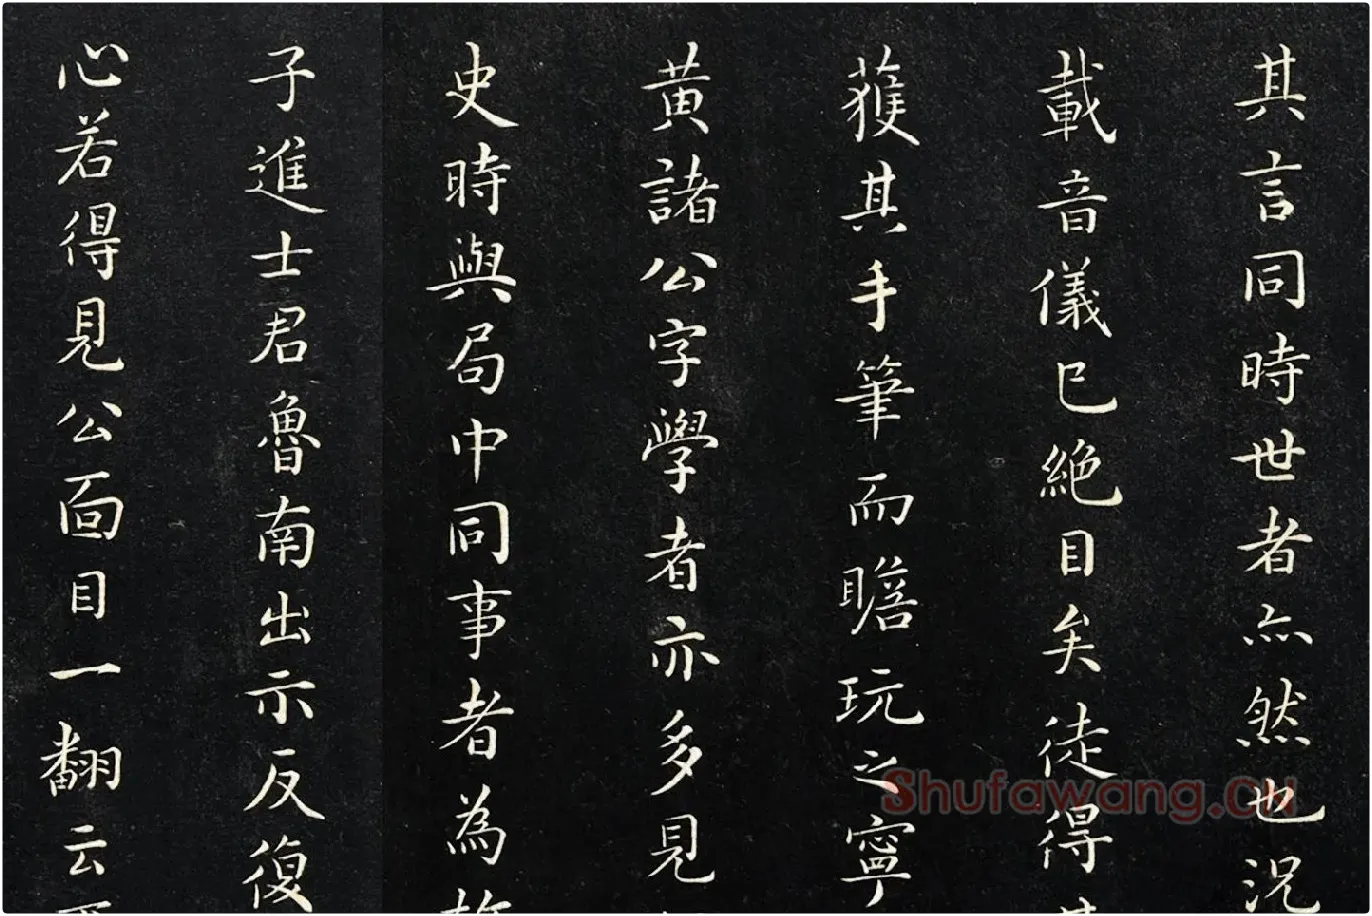 其言同時世者亦然也況
載音儀已絕目矣徒得
獲其手筆而瞻玩之寧
黄諸公字學者亦多見
史時與局中同事者為
子進士君魯南出示反復
心若得見公面目一翻云
Shufawang.CN